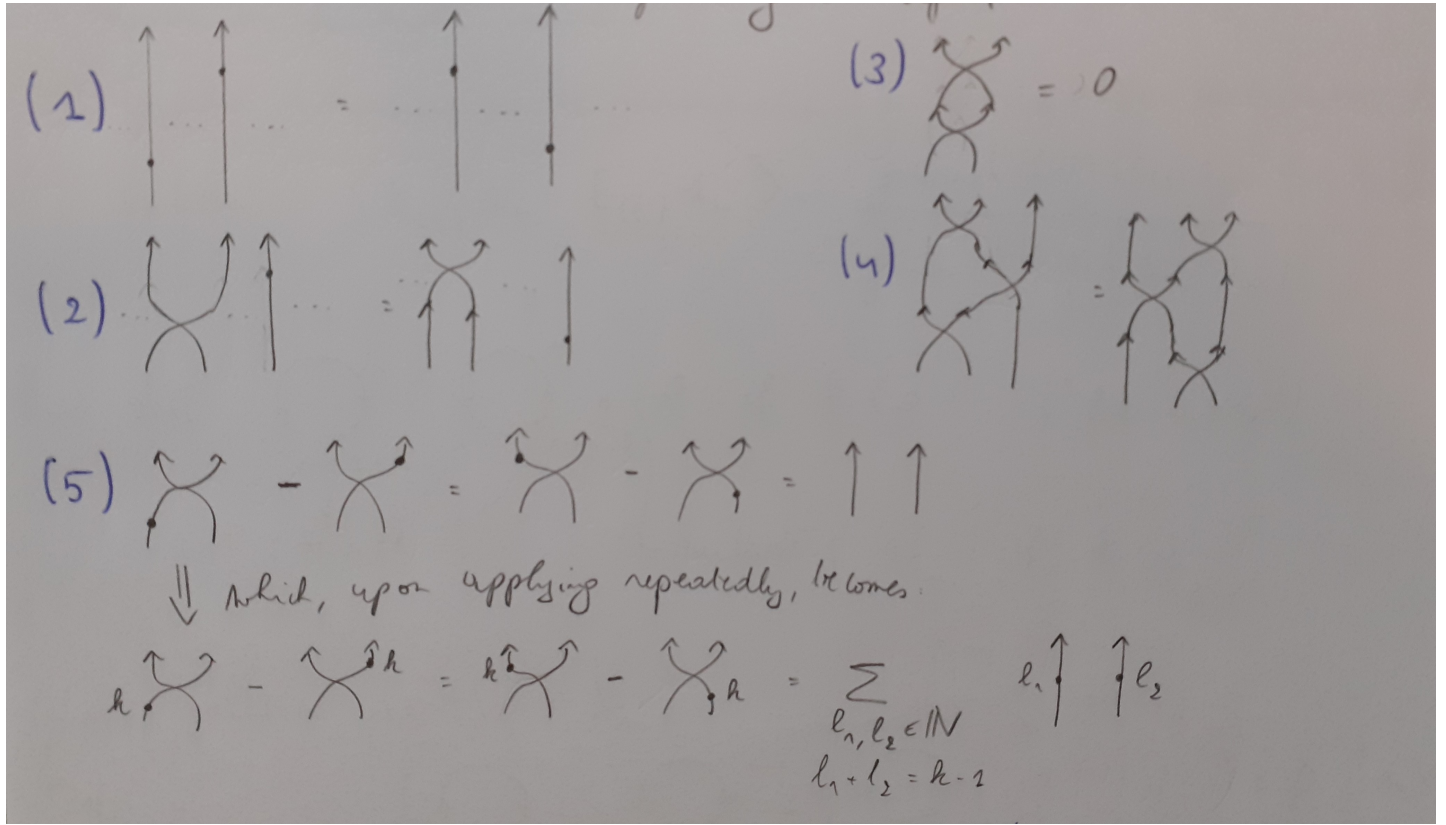 (1) =
(3) = 0
(2) =
(4) =
(5) - = - =
which, upon applying repeatedly, becomes:
k - k = k - k = Σ l₁ l₂
l₁, l₂ ∈ ℕ
l₁ + l₂ = k - 1